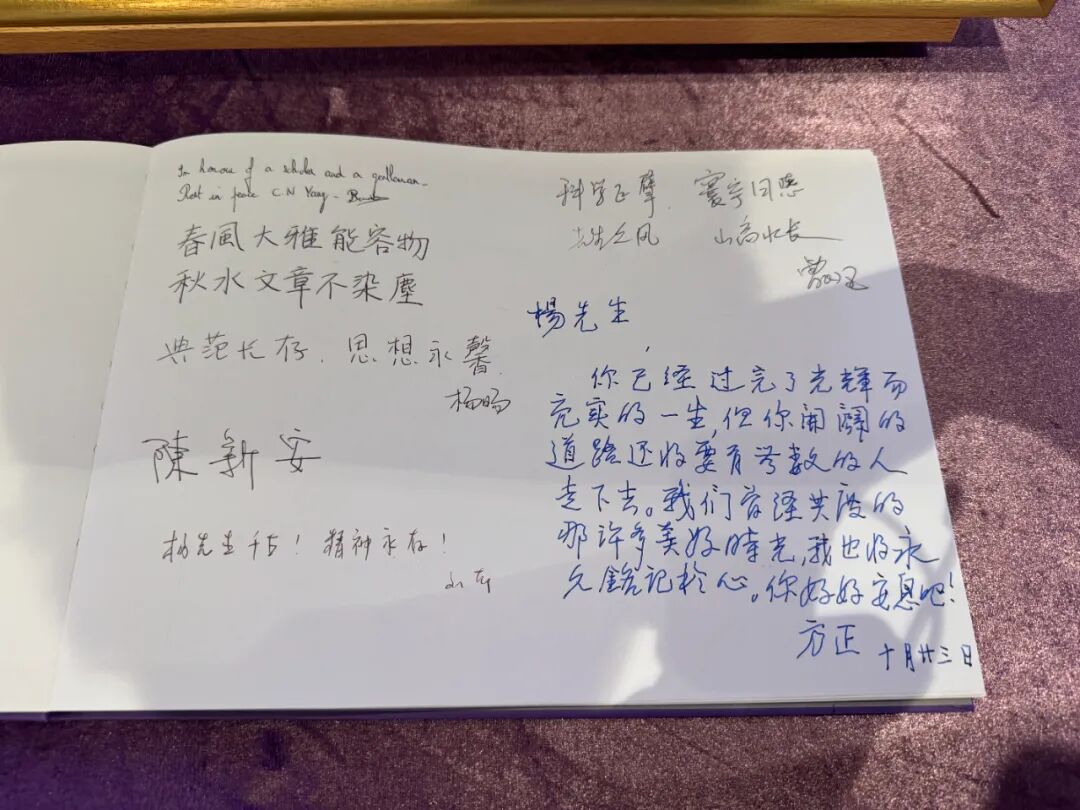 In honour of a scholar and a gentleman.
Rest in peace C.N Yang -
春風大雅能容物
秋水文章不染塵
典范长存，思想永馨
杨旸
陳新安
杨先生千古！精神永存！
科学巨擘，寰宇同悲
先生之风 山高水长
楊先生，
你已经过完了光輝而
充实的一生，但你開闢的
道路还將要有無数的人
走下去。我们曾经共度的
那许多美好時光，我也將永
久銘記於心。你好好安息吧！
方正 十月廿三日